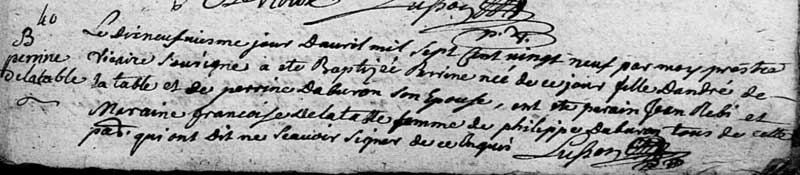 40
B
perrine
Delatable
Le dixneufuieme jour dauril mil sept cent vingt neuf par moy prestre
vicaire sousigne a ete Baptizée Perrine née de ce jour fille dandré de
la table et de perrine Daburon son Epouse, ont ete parain Jean Rebi et
Maraine francoise Delatable femme de philippe Daburon tous de cette
paroi qui ont dit ne scauoir signer de ce enquis
Lusson